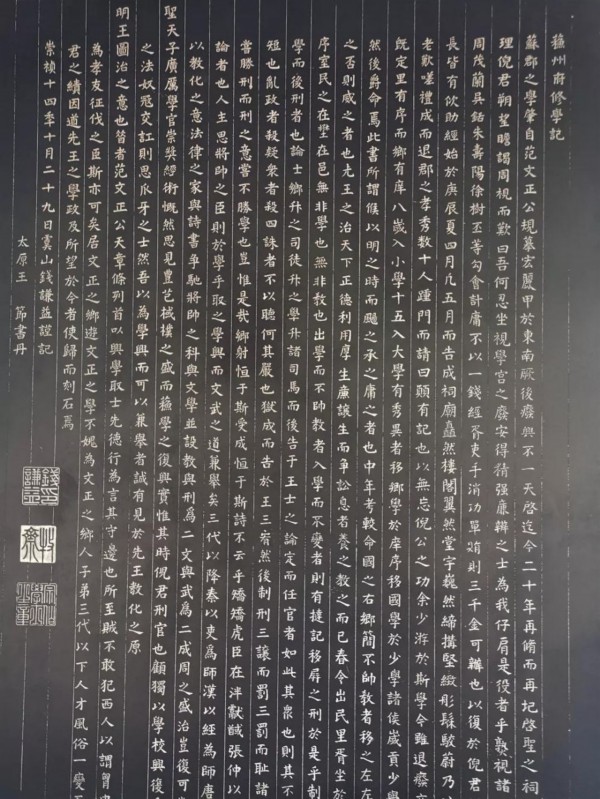 蘇州府修學記
蘇郡之學肇自范文正公規蓦宏麗甲於東南厥後癈興不一天啓迄今二十年再脩而再圮啓聖之祠
理倪君朔望瞻謁周視而歎曰吾何忍坐視學宮之癈安得猜强廉辨之士為我仔肩是役者乎熟視諸
周茂蘭吳鉉朱壽陽徐樹丕等勾會計庸不以一錢經胥吏手消功單賄則三千金可辦也以復於倪君
長皆有佽助經始於庚辰夏四月凡五月而告成祠廟矗然樓閣翼然堂宇巍然締搆堅緻彤髹駿蔚乃
老獻嗟禮成而退郡之孝秀數十人踵門而請曰願有記也以無忘倪公之功余少游於斯學今雖退癈
既定里有序而鄉有庠八歲入小學十五入大學有秀異者移鄉學於庠序移國學於少學諸侯歲貢少學
然後爵命焉此書所謂侯以明之時而颺之承之庸之者也中年考較命國之右鄉簡不帥教者移之左
之否則威之者也先王之治天下正德利用厚生廉讓生而爭訟息者養之教之而已春令出民里胥坐於
序室民之在壄在邑無非學也無非教也出學而不帥教者入學而不變者則有撻記移屏之刑於是乎制
學而後刑者也論士鄉升之司徒升之學升諸司馬而後告于王士之論定而任官者如此其眾也則其不
短也亂政者殺疑眾者殺四誅者不以聽何其嚴也獄成而告於王三宥然後制刑三讓而罰三罰而恥諸
嘗勝刑而刑之意嘗不勝學也豈惟是哉鄉射恒于斯受成恒于斯詩不云乎矯矯虎臣在泮獻馘張仲以
論者也人主思將帥之臣則於學乎取之學興而文武之道兼舉矣三代以降秦以吏為師漢以經為師唐
以教化之意法律之家與詩書爭馳將帥之科與文學並設教與刑為二文與武為二成周之盛治豈復可
聖天子廣厲學官崇奬經術慨然思見豐芑棫樸之盛而蘇學之復興實惟其時倪君刑官也顧獨以學校興復
之法奴寇交訌則思爪牙之士然吾以為學興而可以兼舉者誠有見於先王教化之原
明王圖治之意也昔者范文正公天章條列首以興學取士先德行為言其守邊也所至賊不敢犯西人以謂胷中
為孝友征伐之臣斯亦可矣居文正之鄉遊文正之學不媿為文正之鄉人子弟三代以下人才風俗一變
君之績因道先王之學政及所望於今者使歸而刻石焉
崇禎十四年十月二十九日虞山錢謙益謹記
太原王節書丹